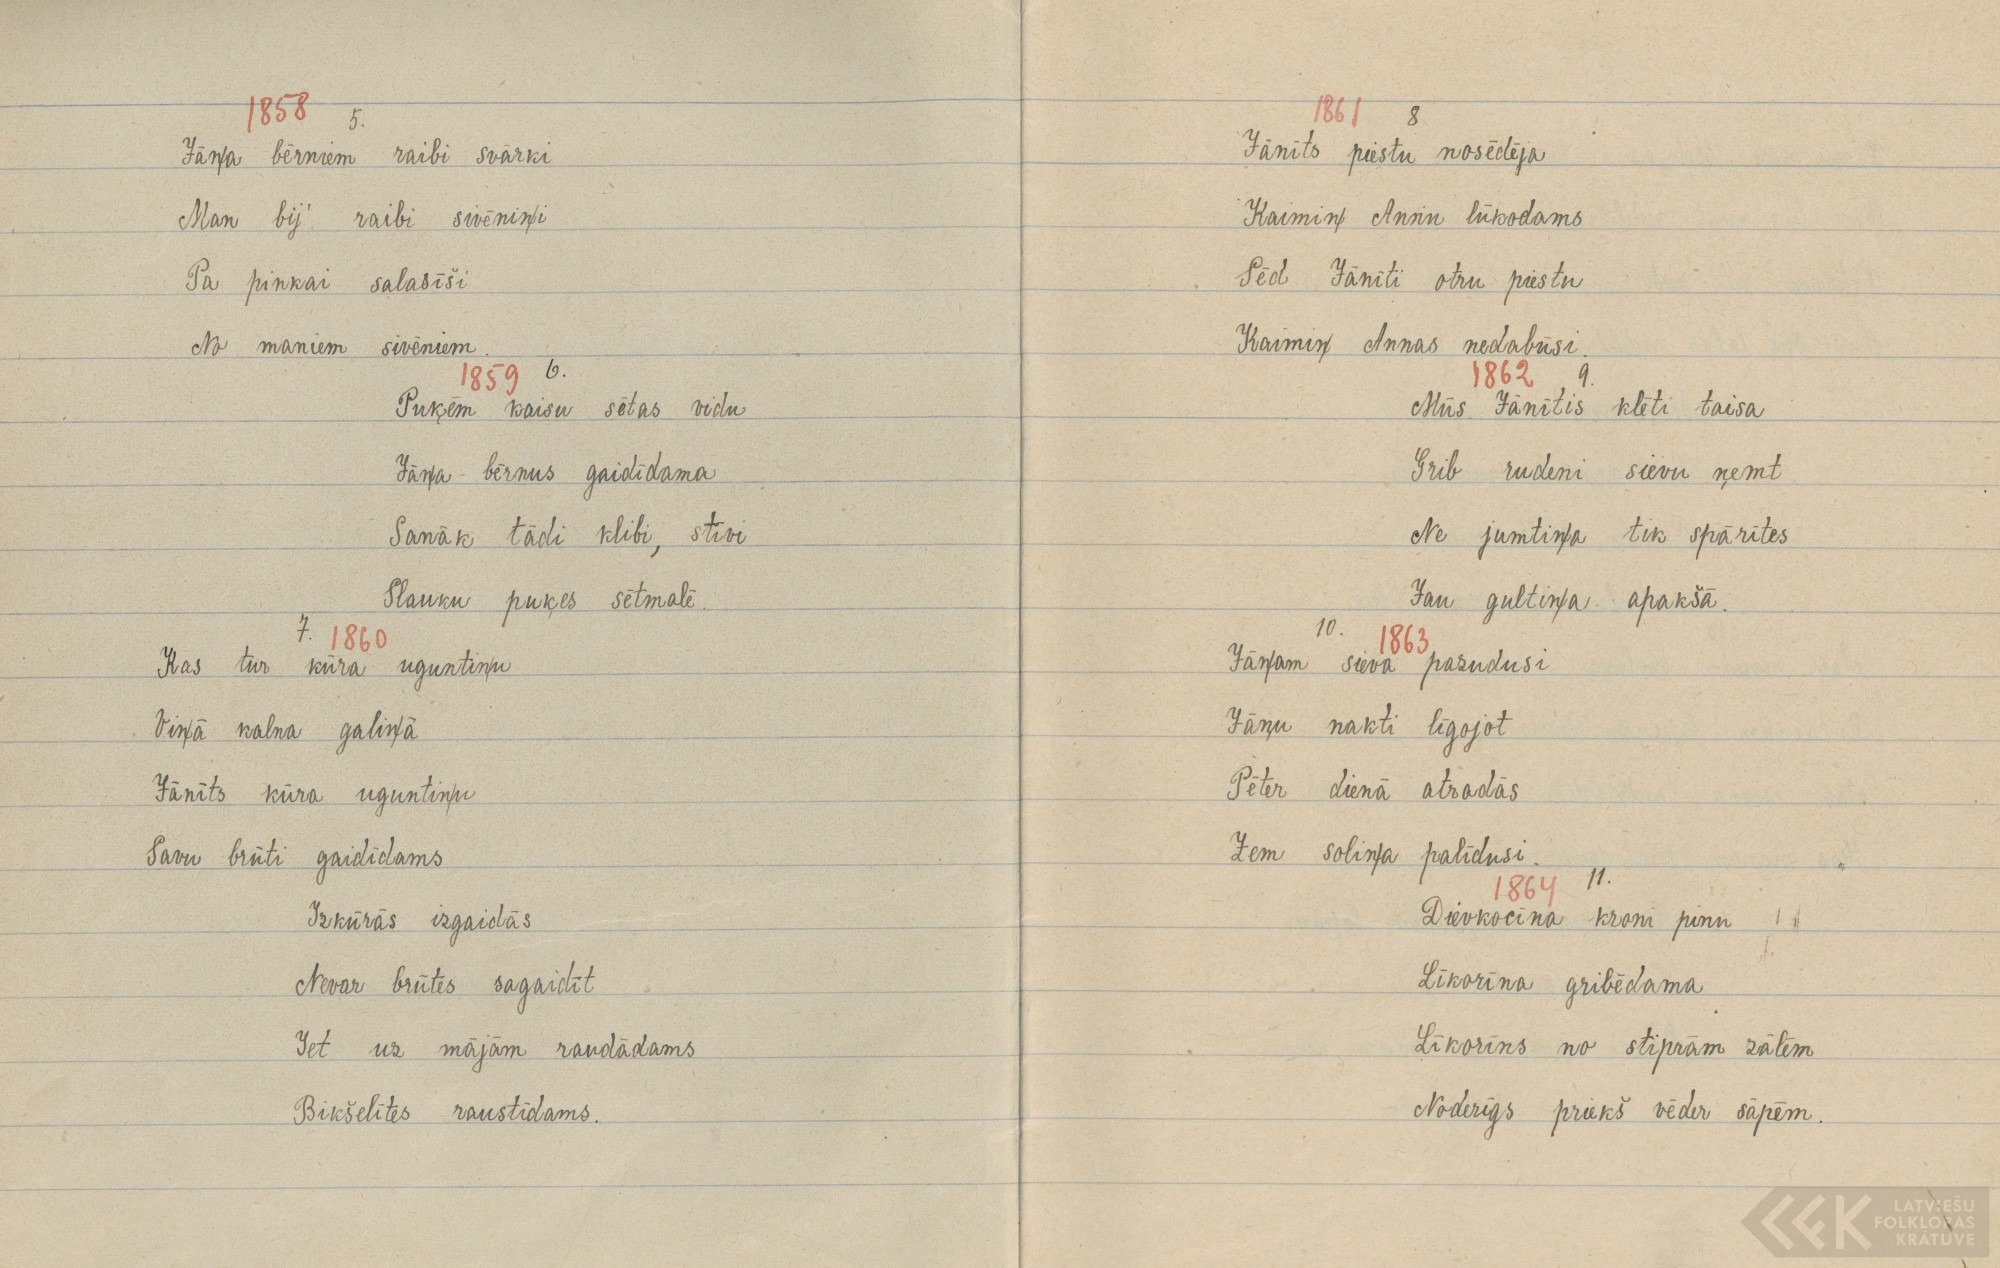 1858 5.
Jāņa bērniem raibi svārki
Man bij' raibi sivēniņi
Pa pinkai salasīši
No maniem sivēniem.
1859 6.
Puķēm kaisu sētas vidu
Jāņa bērnus gaidīdama
Sanāk tādi klibi, stīvi
Slauku puķes sētmalē.
7. 1860
Kas tur kūra uguntiņu
Viņā kalna galiņā
Jānīts kūra uguntiņu
Savu brūti gaidīdams
Izkūrās izgaidās
Nevar brūtes sagaidīt
Iet uz mājām raudādams
Bikšelītes raustīdams.
1861 8
Jānīts piestu nosēdēja
Kaimiņ Annu lūkodams
Sēd Jānīti otru piestu
Kaimiņ Annas nedabūsi.
1862 9.
Mūs Jānītis klēti taisa
Grib rudeni sievu ņemt
Ne jumtiņa tik spārītes
Jau gultiņa apakšā.
10. 1863
Jāņam sieva pazudusi
Jāņu nakti līgojot
Pēter dienā atradās
Zem soliņa palīdusi.
1864 11.
Dievkociņa kroni pinu
Līkoriņa gribēdama
Līkoriņš no stiprām zālēm
Noderīgs priekš vēder sāpēm.
LATVIEŠU
FOLKLORAS
KRĀTUVE